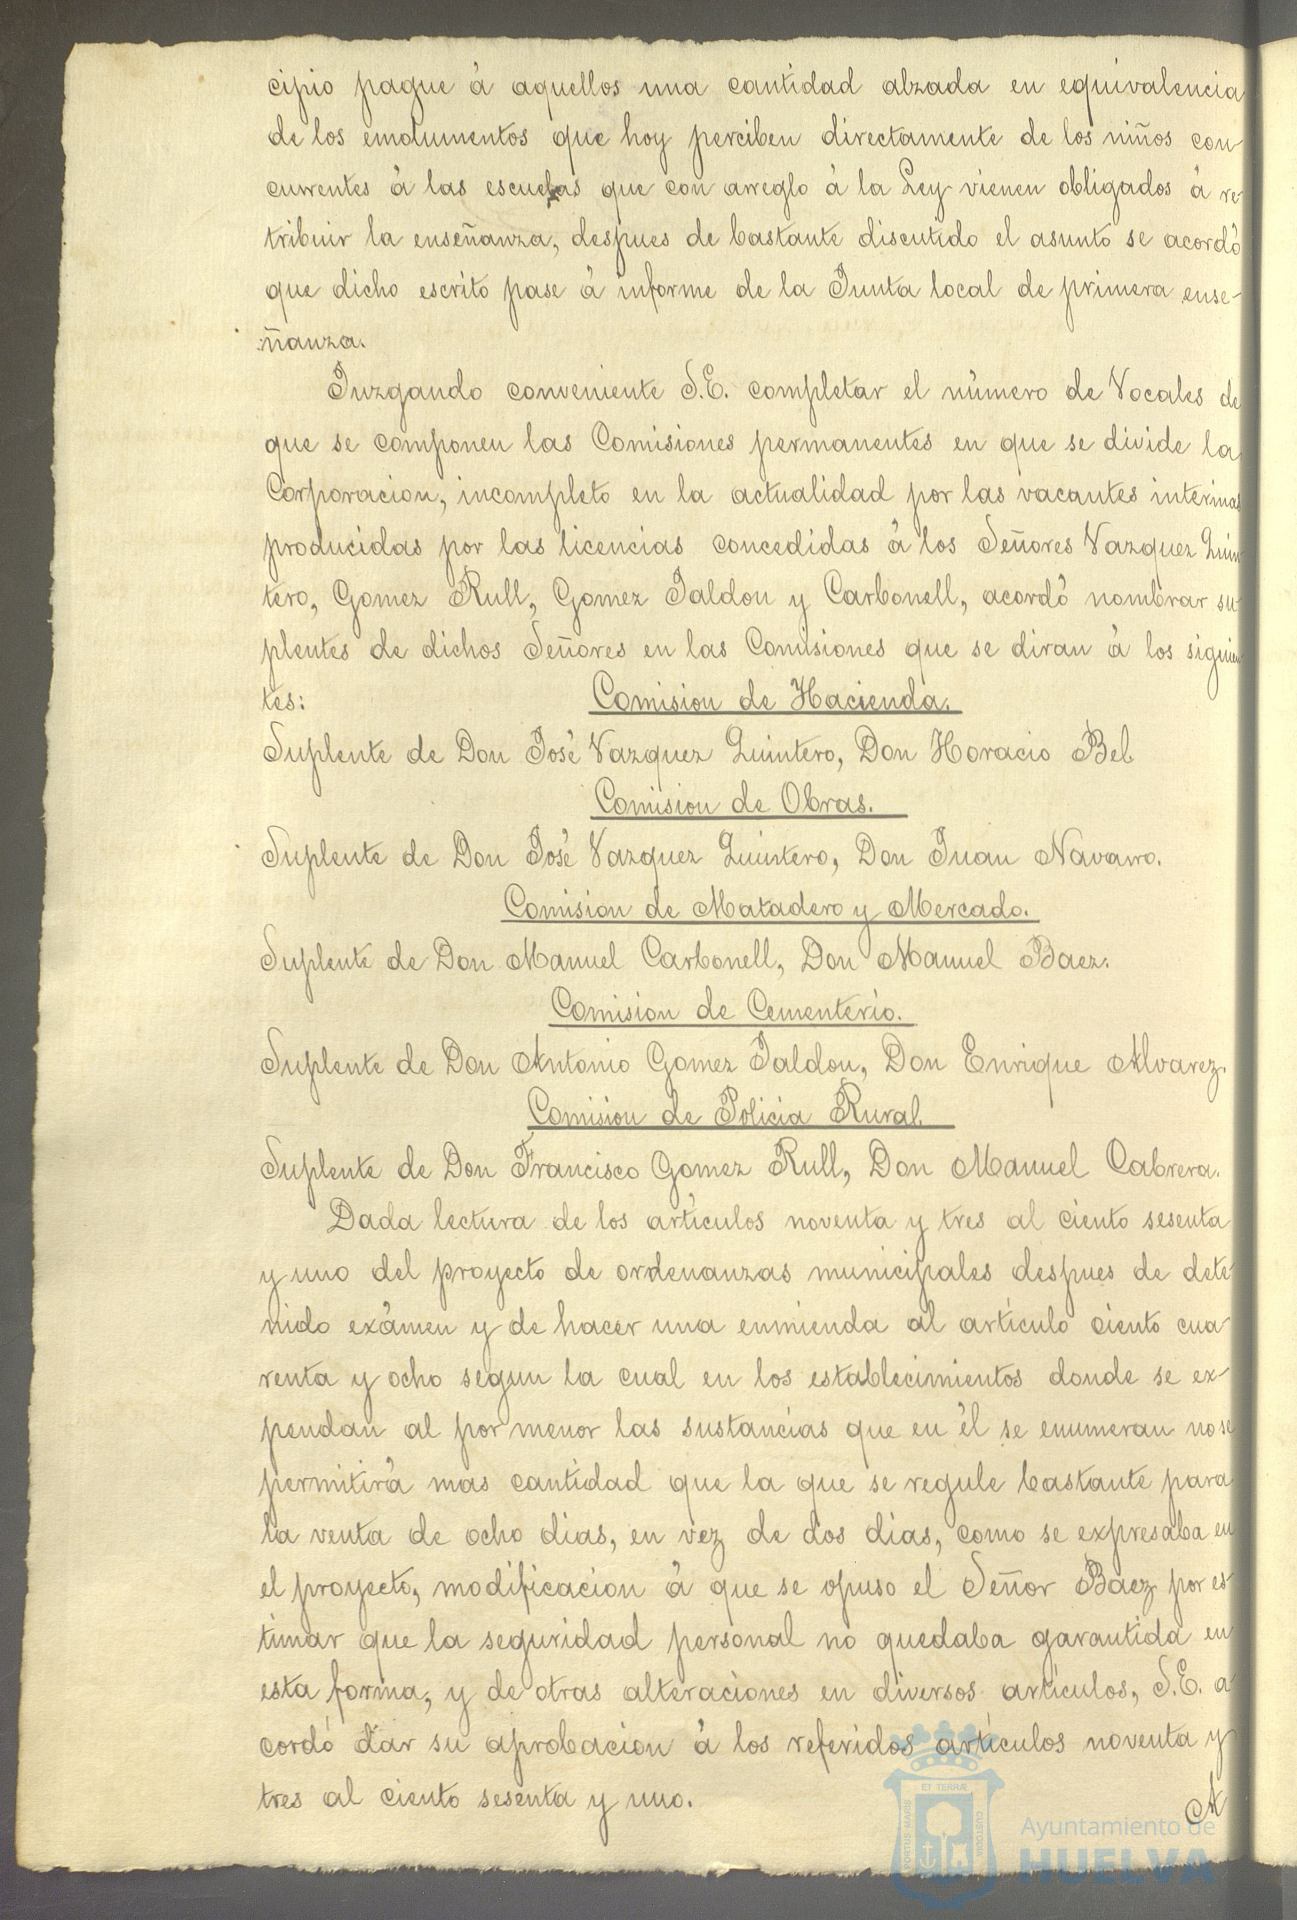 cipio pague á aquellos una cantidad alzada en equivalencia
de los emolumentos que hoy perciben directamente de los niños con
currentes á las escuelas que con arreglo á la Ley vienen obligados á re-
tribuir la enseñanza, despues de bastante discutido el asunto se acordó
que dicho escrito pase á informe de la Junta local de primera ense-
ñanza.
Juzgando conveniente S.E. completar el número de Vocales de
que se componen las Comisiones permanentes en que se divide la
Corporacion, incompleto en la actualidad por las vacantes interinas
producidas por las licencias concedidas á los Señores Vazquez Quin
tero, Gomez Rull, Gomez Jaldon y Carbonell, acordó nombrar su
plentes de dichos Señores en las Comisiones que se diran á los siguien
tes: Comision de Hacienda.
Suplente de Don José Vazquez Quintero, Don Horacio Bel
Comision de Obras.
Suplente de Don José Vazquez Quintero, Don Juan Navarro.
Comision de Matadero y Mercado.
Suplente de Don Manuel Carbonell, Don Manuel Baez.
Comision de Cementerio.
Suplente de Don Antonio Gomez Jaldon, Don Enrique Alvarez.
Comision de Policia Rural.
Suplente de Don Francisco Gomez Rull, Don Manuel Cabrera.
Dada lectura de los artículos noventa y tres al ciento sesenta
y uno del proyecto de ordenanzas municipales despues de dete
nido exámen y de hacer una enmienda al artículo ciento cua
renta y ocho segun la cual en los establecimientos donde se ex-
pendan al por menor las sustancias que en él se enumeran no se
permitirá mas cantidad que la que se regule bastante para
la venta de ocho dias, en vez de dos dias, como se expresaba en
el proyecto, modificacion á que se opuso el Señor Baez por es-
timar que la seguridad personal no quedaba garantida en
esta forma, y de otras alteraciones en diversos artículos, S.E. a
cordó dar su aprobacion á los referidos artículos noventa y
tres al ciento sesenta y uno.
A
ET TERRÆ
PORTUS MARIS
CUSTODIA
Ayuntamiento de
HUELVA